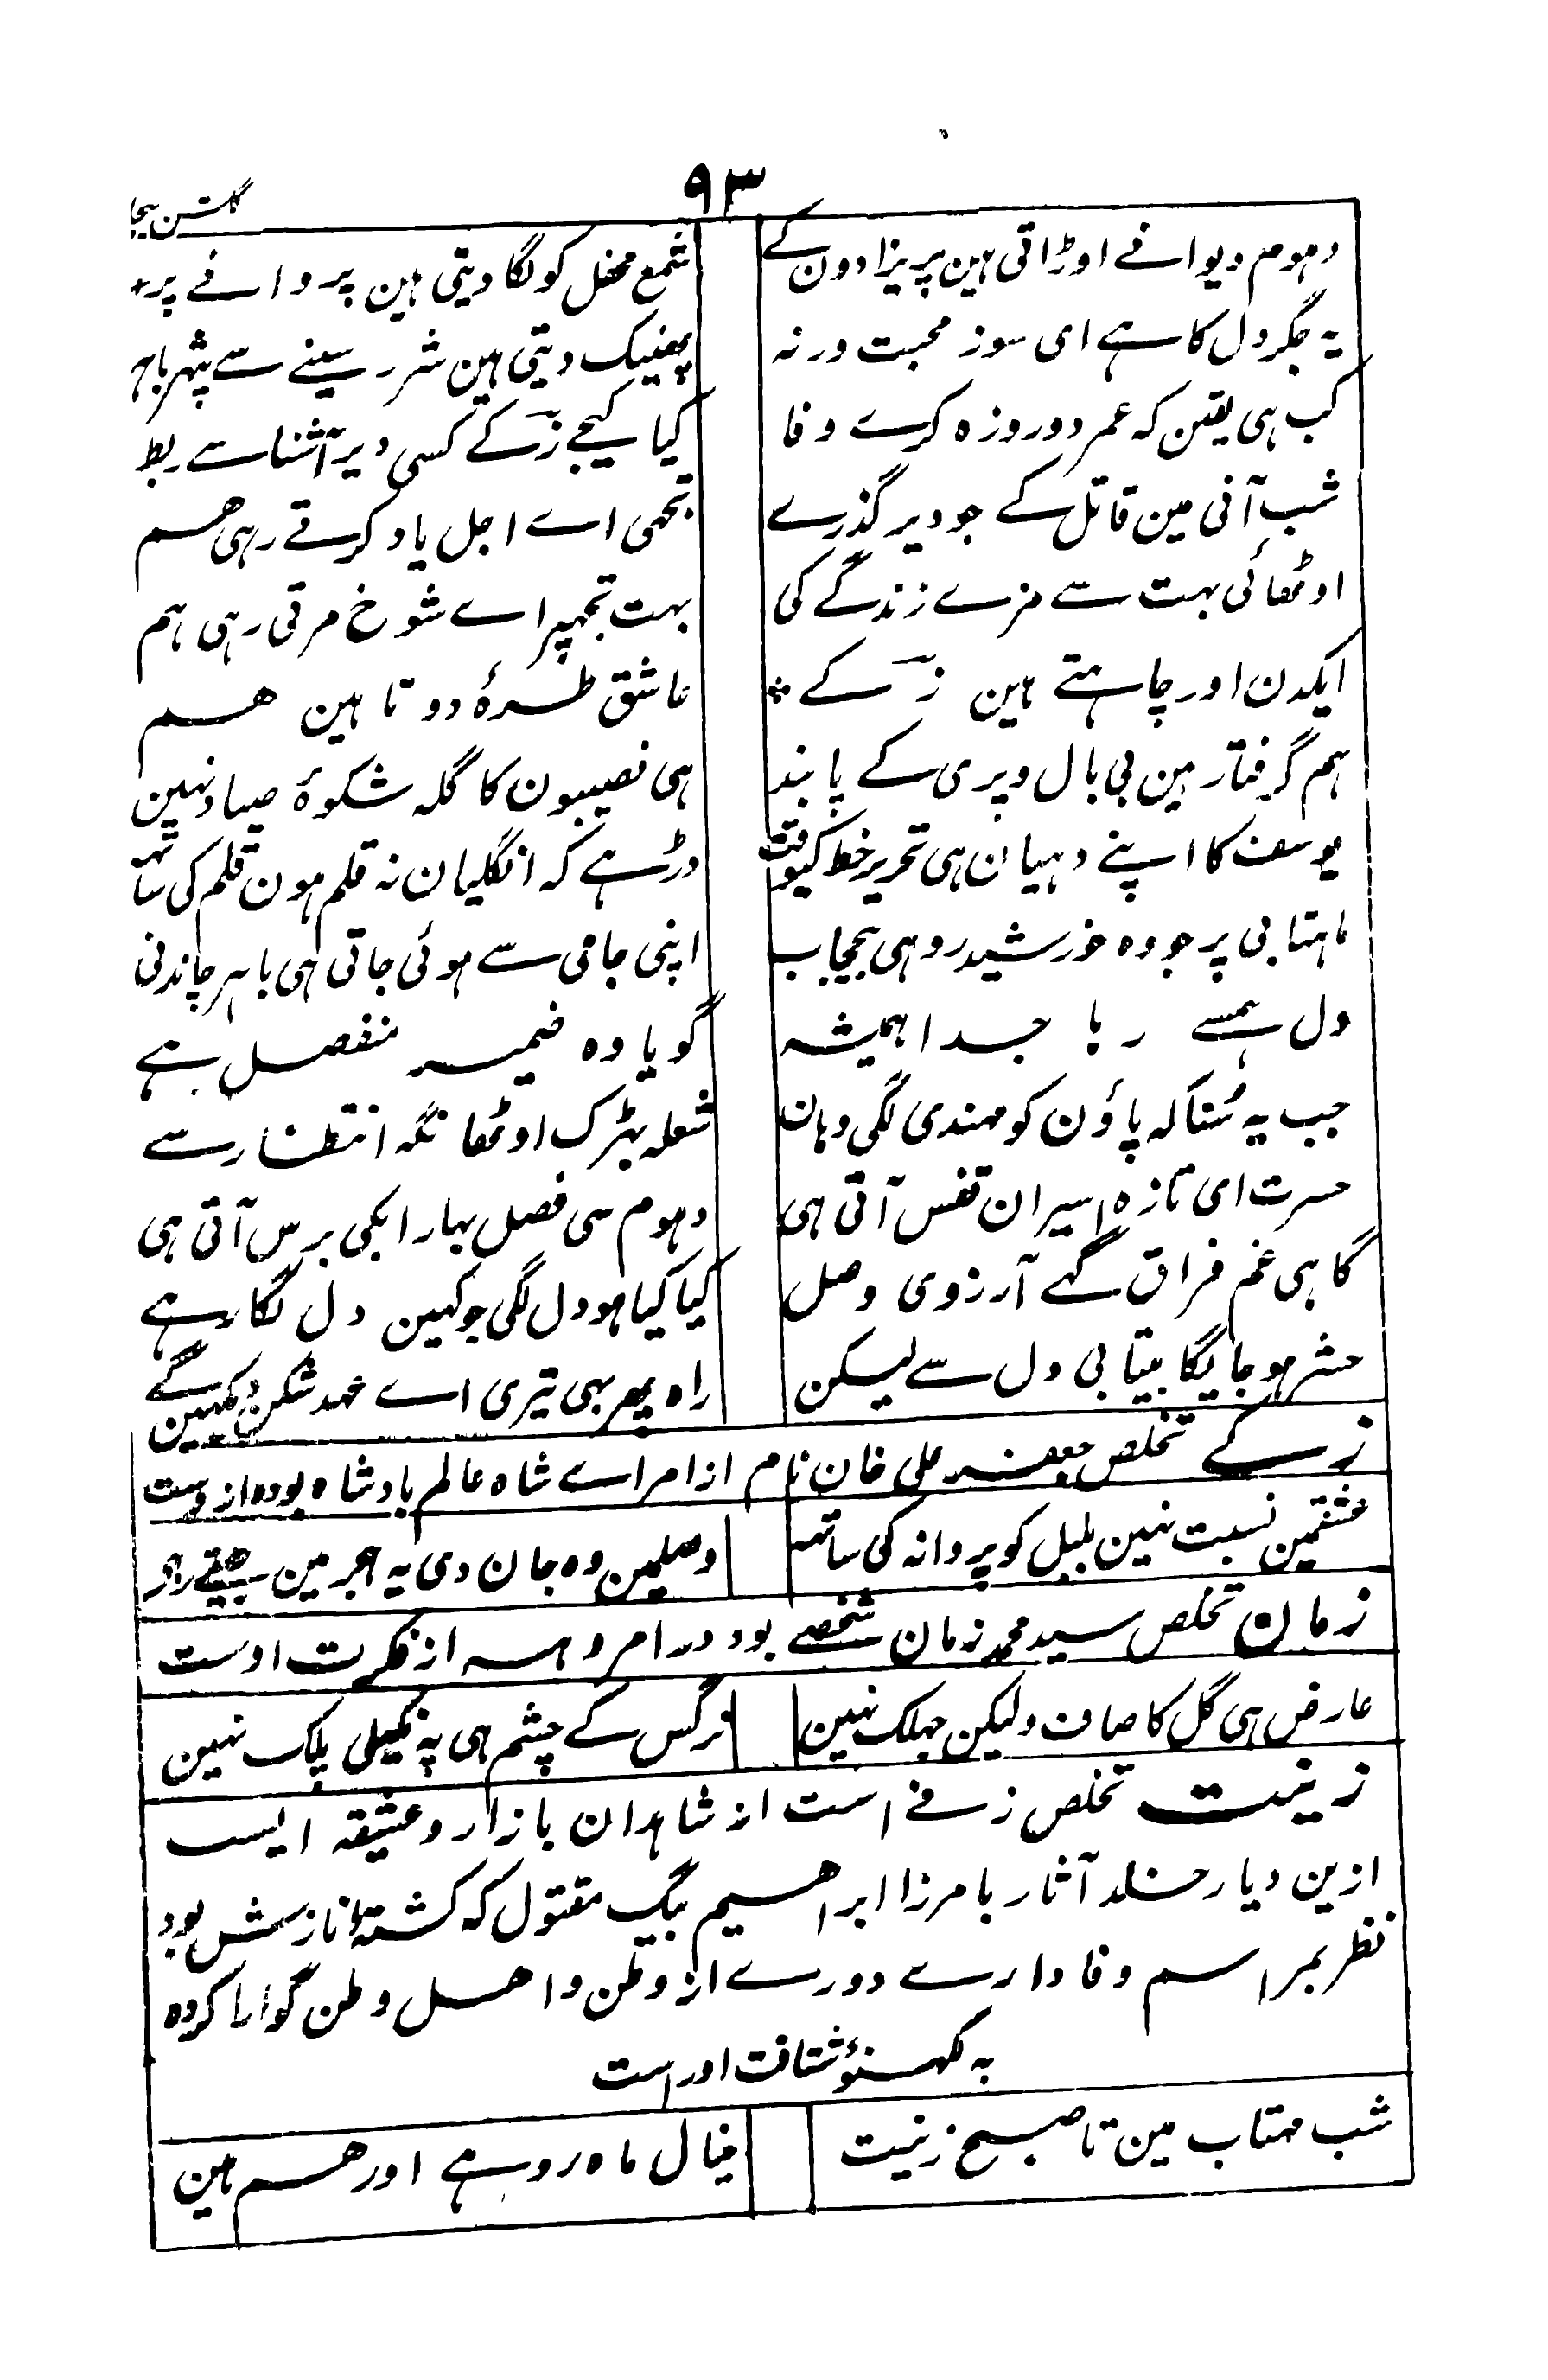 ۹۳
گلشن بیخا
دہوم دیوانے اوڑاتی ہین پریزادون کے شمع محفل کو لگا دیتی ہین پروانے پر
یہ جگر دل کا ہے ای سوز محبت ورنہ پھینک دیتی ہین شرر سینے سے پتھر باہر
کب ہی یقین کہ عمر دو روزہ کرے وفا کیا کیجے زکے کسی دیر آشنا سے ربط
شب آنی مین قاتل کے جو دیر گذرے تجھی اے اجل یاد کرتے رہی ہم
اوٹھائی بہت سے مزے زندگے کی بہت تجھپر اے شوخ مرتی رہی ہم
ایکدن اور چاہتے ہین زکے عاشق طرۂ دوتا ہین ہم
ہم گرفتار ہین بی بال و پری کے پابند ہی نصیبون کا گلہ شکوۂ صیاد نہین
یوسف کا اپنے دہیان ہی تحریر خط کیوقت ڈر ہے کہ انگلیان نہ قلم ہون قلم کی ساتہہ
ماہتابی پر جو وہ خورشید رو ہی بیحجاب اپنی جامی سے ہوئی جاتی ہی باہر چاندنی
دل ہمسے رہا جدا ہمیشہ گویا وہ ضمیر منفصل ہے
جب یہ سُنا کہ پاؤن کو مہندی لگی وہان شعلہ بہڑک اوٹھا نگہ انتظار سے
حسرت ای تازہ اسیران قفس آتی ہی دہوم سی فصل بہار ابکی برس آتی ہی
گاہی غم فراق گہے آرزوی وصل کیا کیا ہو دل لگی جو کہین دل لگا رہے
حشر ہو جایگا بیتابی دل سے لیکن راہ پھر بہی تیری اے عہد شکن دیکہین گے
زکے تخلص جعفر علی خان نام از امراے شاہ عالم بادشاہ بودہ ازوست
عشقمین نسبت نہین بلبل کو پروانہ کی ساتہہ وصلمین وہ جان دی یہ ہجر مین جیتے رہی
زمان تخلص سید محمد زمان شخصے بود در امروہہ از فکرت اوست
عارض ہی گل کا صاف ولیکن جہلک نہین نرگس کے چشم ہی پہ نکیلی پلک نہین
زینت تخلص زنے است از شاہدان بازار و عشیقہ ایست
ازین دیار خلد آثار با مرزا ابراہیم بیگ مقتول کہ کشتۂ نازش بود
نظر بمراسم وفادارے دورے از وطن و اہل وطن گوارا کردہ
بہ لکہنؤ شتافت اوراست
شب مہتاب مین تا صبح زینت خیال ماہرو ہے اور ہم ہین